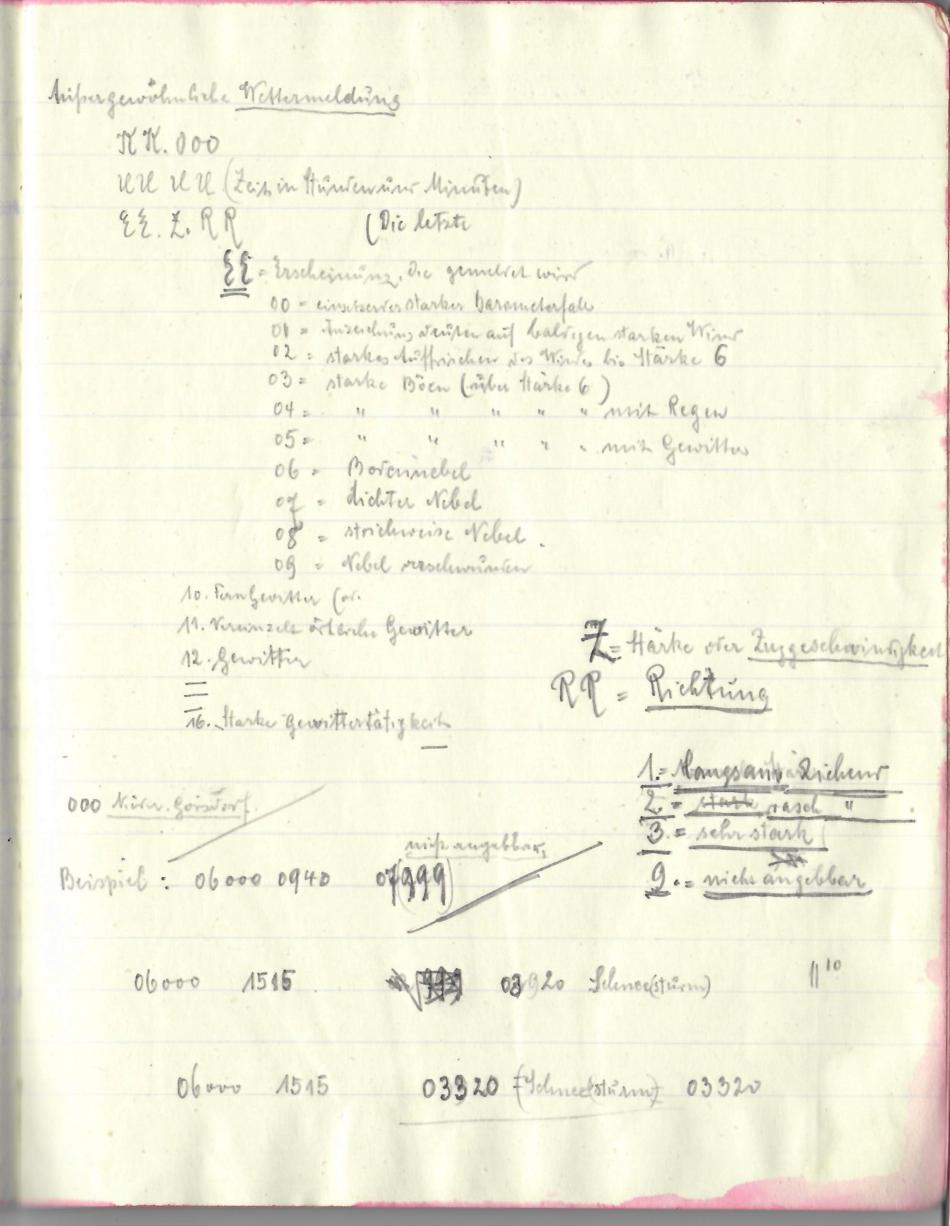 Außergewöhnliche Wettermeldung
KK. 000
UU UU (Zeit in Stunden und Minuten)
EE. Z. RR (Die letzte
EE = Erscheinung, die gemeldet wird
00 = einsetzender starker Barometerfall
01 = Anzeichen deuten auf baldigen starken Wind
02 = starkes Auffrischen des Windes bis Stärke 6
03 = starke Böen (über Stärke 6)
04 = " " " " " mit Regen
05 = " " " " " mit Gewitter
06 = Bodennebel
07 = dichter Nebel
08 = strichweise Nebel.
09 = Nebel verschwunden
10. Ferngewitter (od.
11. Vereinzelt örtliche Gewitter
Z = Stärke oder Zuggeschwindigkeit
12. Gewitter
RR = Richtung
16. Starke Gewittertätigkeit
1. = langsam ziehend
000 Nieder. Görsdorf.
2. = stark rasch "
3. = sehr stark
nicht angebbar
Beispiel: 06000 0940 07(999)
9. = nicht angebbar
06000 1515 03920 Schnee(sturm) 11 10
06000 1515 03320 (Schnee(sturm) 03320